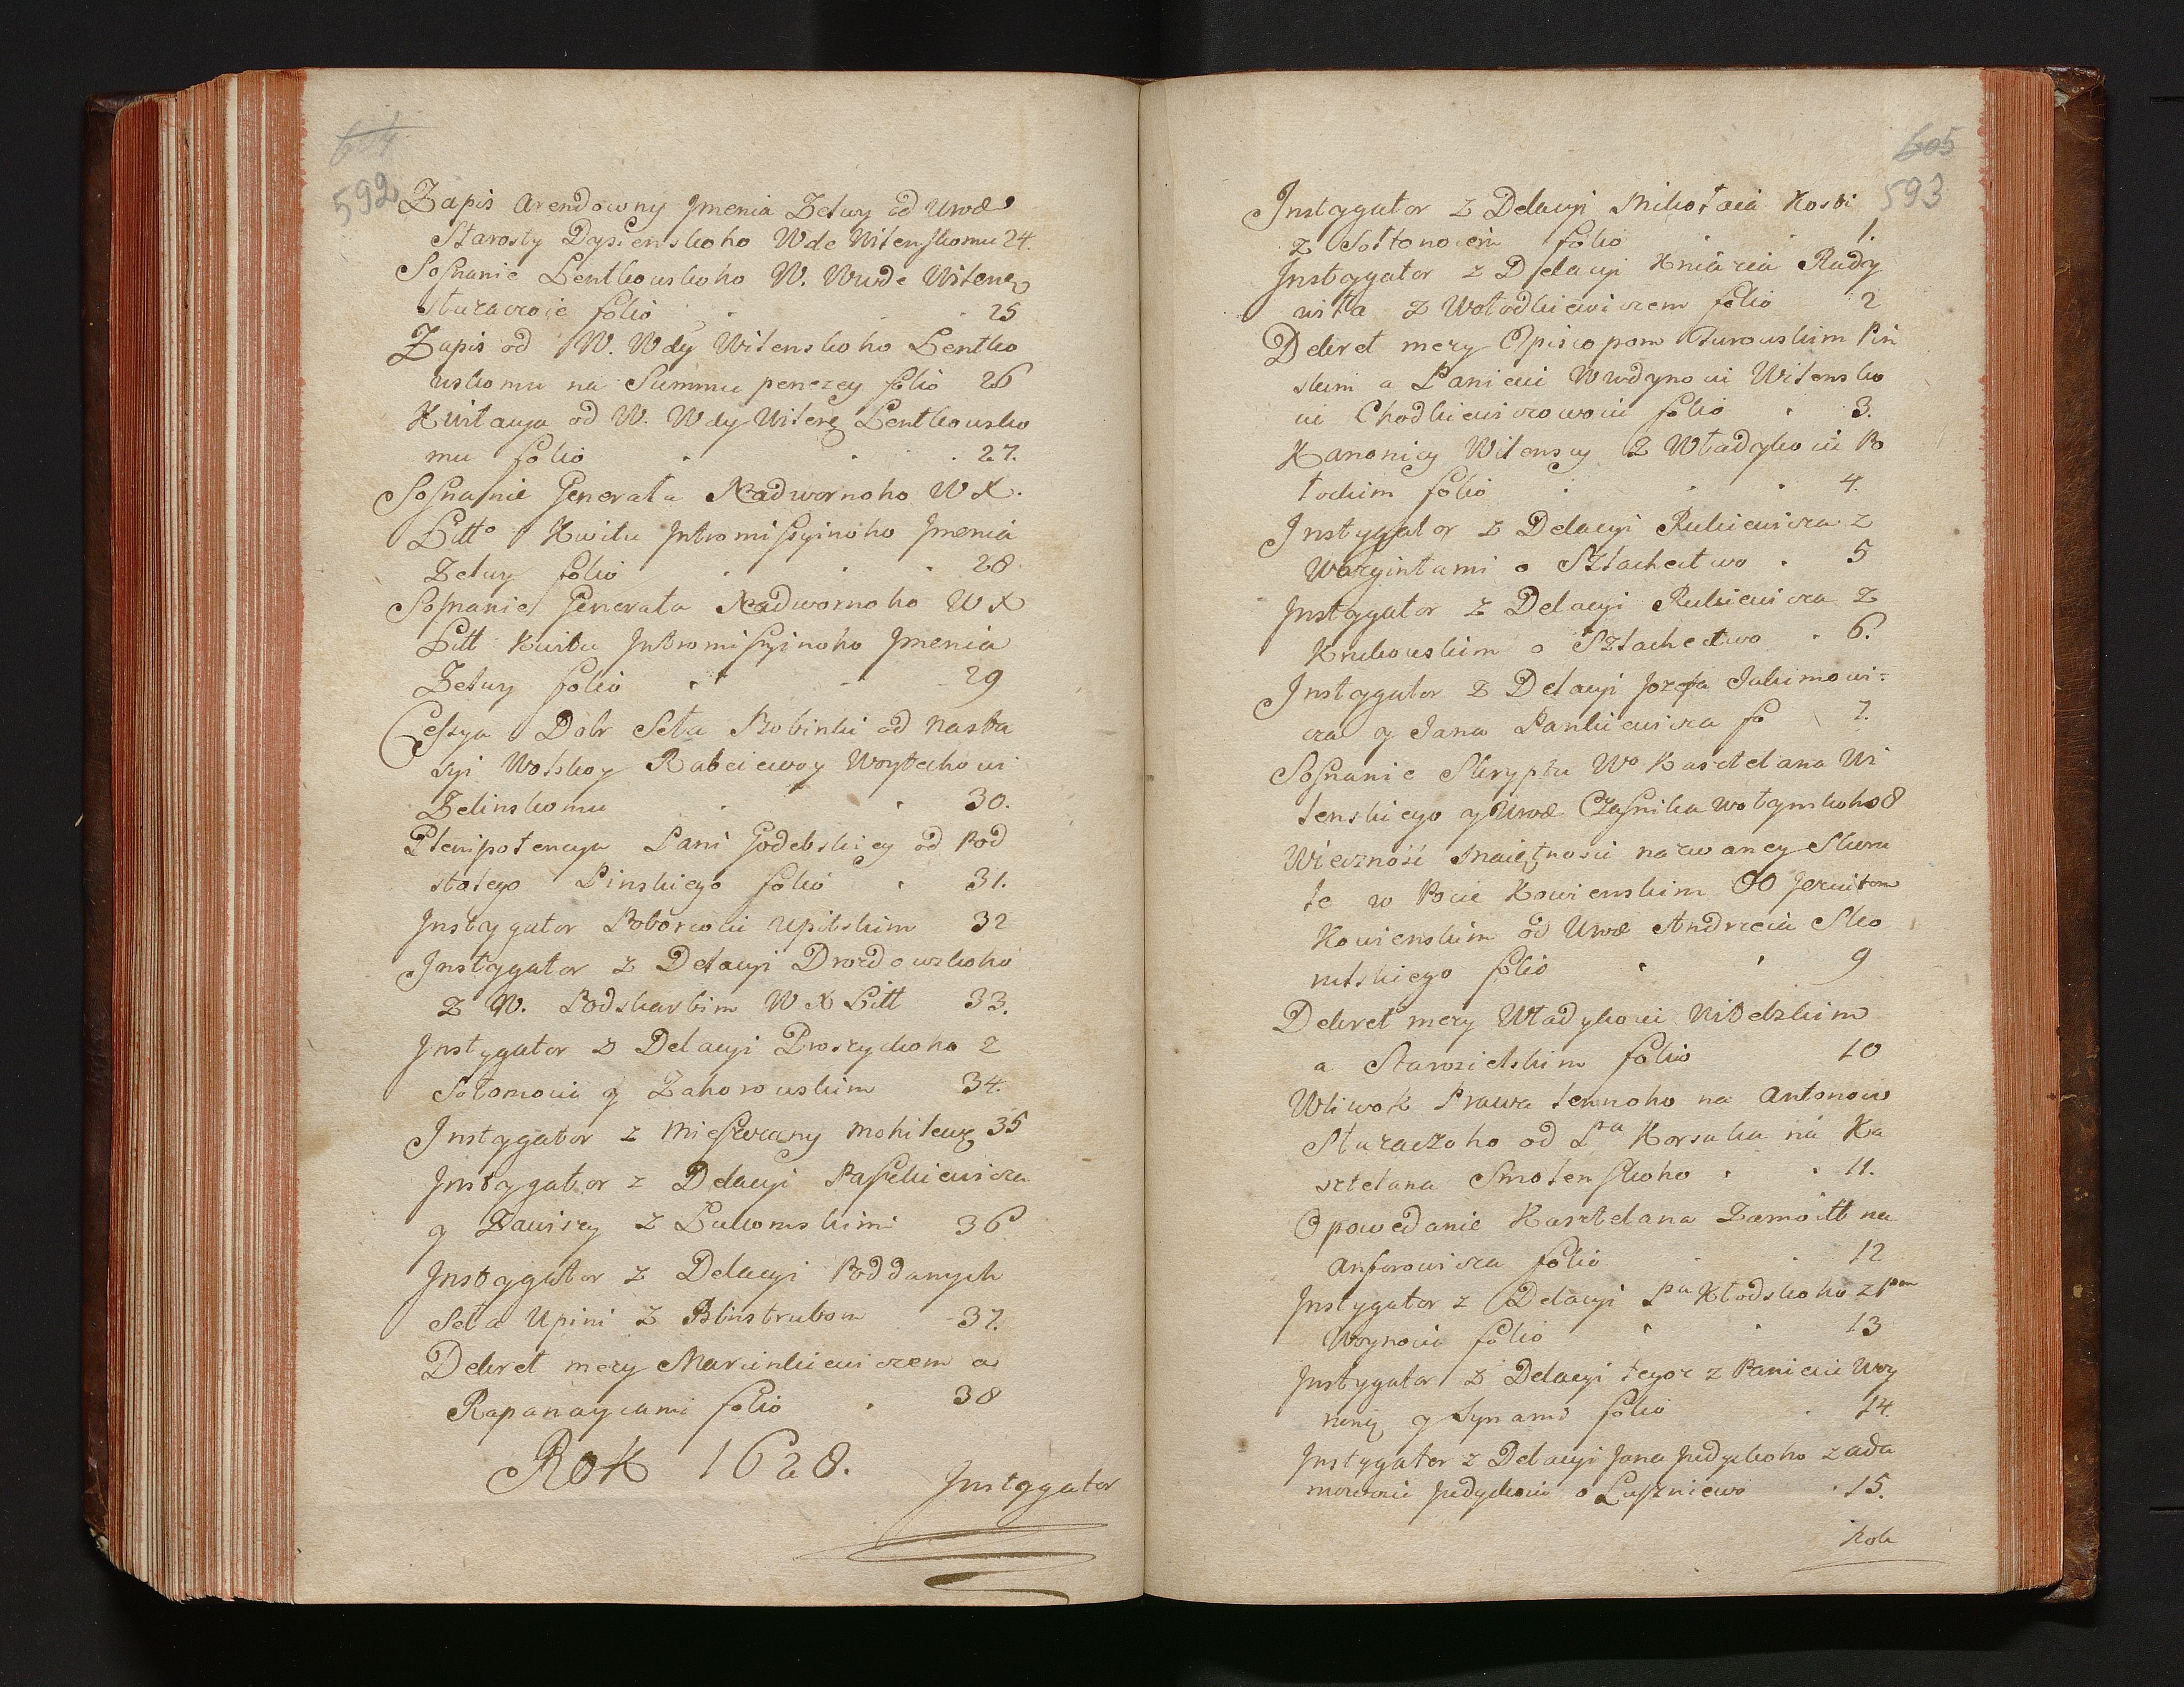 604
592
Zapis Arendowny Jmenia Zelwy od Uwd
Starosty Dysienskoho Wde Witenskomu 24.
Sosnanie Lentkowskoho W. Wwde Witenz
folio 25
Zapis od W. Wdy Witenskoho Lentko
wskomu na Summu penezey folio 26
Kwitacya od W. Wdy Witenz Lentkowsko
mu folio 27.
Sosnanie Generała Nadwornoho WX.
Litto Kwitu Jntromissyinoho Jmenia
Zelwy folio 28
Sosnanie Generała Nadwornoho WX
Litt Kwitu Jntromissyinoho Jmenia
Zelwy folio 29
Cessya Dobr Seła Bobinki od Nasta
syi Wolskoy Rabciewoy Woytechowi
Zelinskomu 30.
Plenipotencya Pani Godebskiey od Pod
stolego Pinskiego folio 31.
Jnstygator Poborcolii Upitskim 32
Jnstygator z Delacyi Drozdowskoho
z W. Podskarbim WX Litt 33.
Jnstygator z Delacyi Proszyckoho z
Sołomoui y Zahorowskim 34.
Jnstygator z Mieszczany Mohilewz 35
Jnstygator z Delacyi Paszkiewicza
y Zawiszy z Łukomskimi 36
Jnstygator z Delacyi Poddanych
Seła Upini z Blinstrubom 37.
Dekret mezy Marcinkiewiczem a
Rapanaycami folio 38
Rok 1628.
Jnstygator
605
593
Jnstygator z Delacyi Mikołaia Kosti
z Sołtonowiem folio 1.
Jnstygator z Delacyi Kniazia Radzy
wiła z Wołodkiewiczem folio 2
Dekret mezy Episcopom Turowskim Pin
skim a Paniciu Wwdzynoui Witensko
iu Chodkiewiczowoiu folio 3.
Kanonicy Wilenscy z Władykoiu Po
łockim folio 4.
Jnstygator z Delacyi Rukiewicza z
Wazgintami o Szlachectwo 5
Jnstygator z Delacyi Rukiewicza z
Krukowskim o Szlachectwo 6.
Jnstygator z Delacyi Jozefa Jakimowi:
cza y Jana Pankiewicza fo 7.
Sosnanie Skryptu Wo Kasztelana Wi
tenskiego y Uwd Czasnika Wołynskoho 8
Wieczność Maiętnosci nazwaney Skoru
le w Pocie Kowienskim OO Jezuitom
Kowienskim od Uwd Andrzeia Sko
rulskiego folio 9
Dekret mezy Władykoiu Witebskim
a Starosielskim folio 10
Wliwok Prawa lennoho na Antonow
od Pa Korsaka na Ka
sztelana Smolenskoho 11.
Opowedanie Kasztelana Zamoitt na
Anforowicza folio 12
Jnstygator z Delacyi Pa Kłodskoho z Pm
Woynoiu folio 13
Jnstygator z Delacyi tegoz z Panieiu Woy
niną y Synami folio 14.
Jnstygator z Delacyi Jana Judyckoho z Ada
mowoiu Judyckoiu o Łuszniewo 15.
Rok